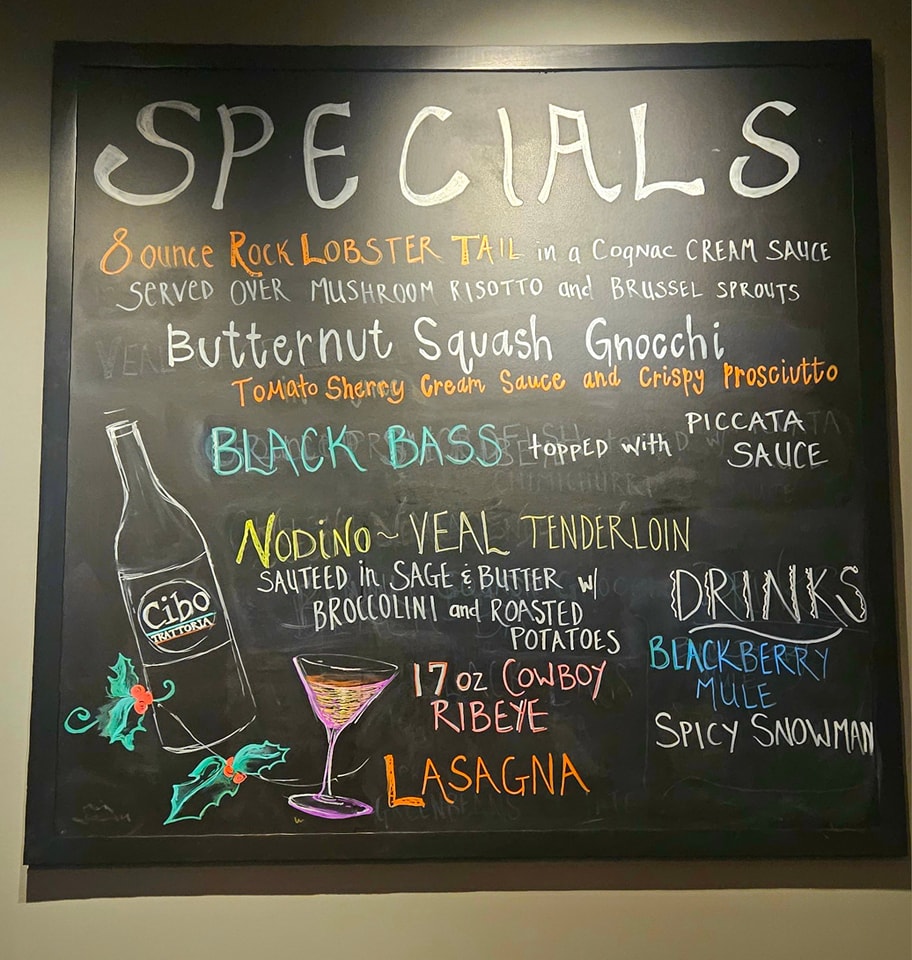 SPECIALS
8 ounce Rock Lobster Tail in a Cognac CREAM SAUCE
SERVED OVER MUSHROOM RISOTTO and BRUSSEL SPROUTS
Butternut Squash Gnocchi
Tomato Sherry Cream Sauce and Crispy Prosciutto
BLACK BASS topped with PICCATA
SAUCE
NODINO ~ VEAL TENDERLOIN
SAUTEED in SAGE & BUTTER w/
BROCCOLINI and ROASTED
POTATOES
17 oz COWBOY
RIBEYE
LASAGNA
DRINKS
BLACKBERRY
MULE
SPICY SNOWMAN
Cibo
TRATTORIA